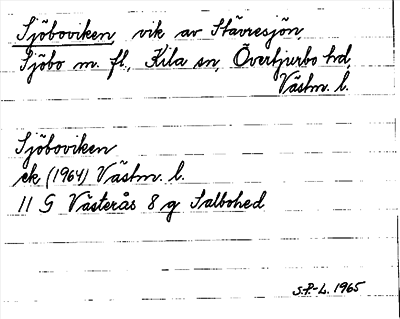 Sjöboviken, vik av Stävresjön,
Sjöbo m. fl., Kila sn, Övertjurbo hd,
Västm. l.
Sjöboviken
ek (1964) Västm. l.
11 G Västerås 8 g Salbohed
S.P-L. 1965